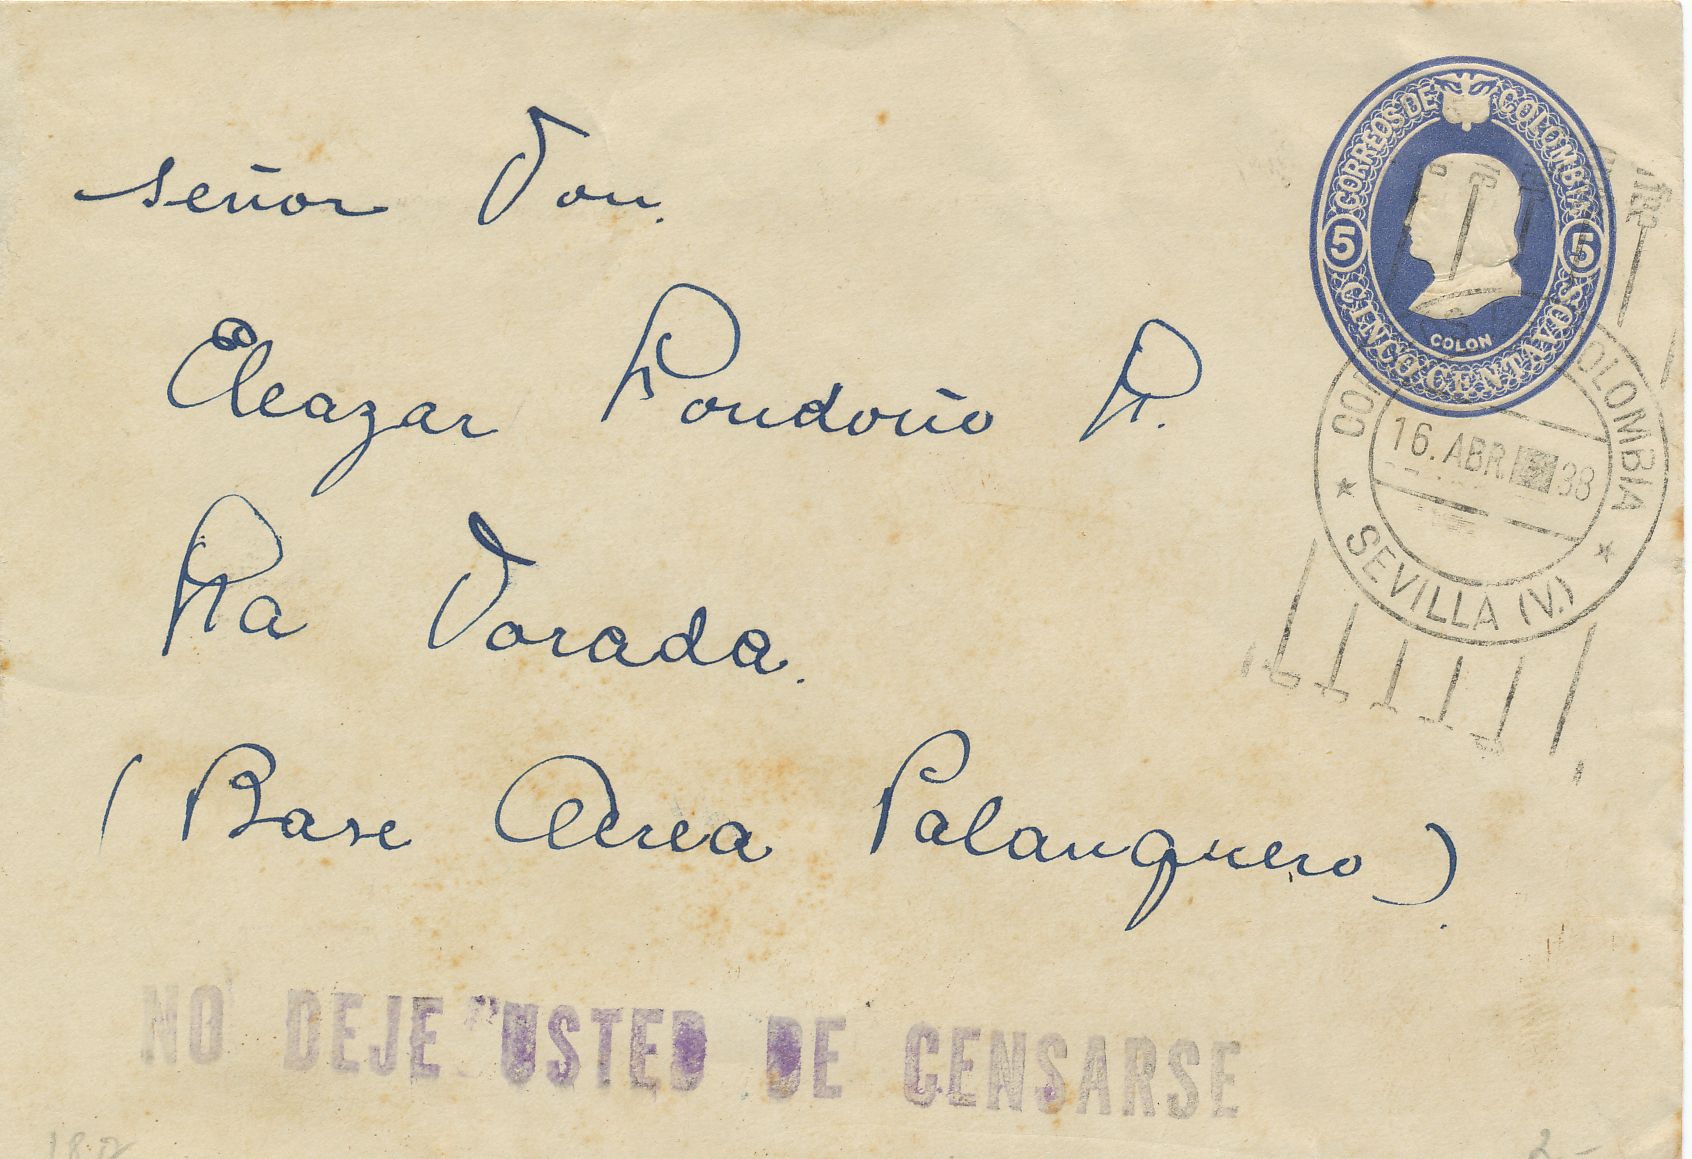 señor Don.
Eleazar Londoño L.
La Dorada.
(Base Aerea Palanquero).
NO DEJE USTED DE CENSARSE
CORREOS DE COLOMBIA
5 5
CINCO CENTAVOS
COLON
COLOMBIA
16. ABR 38
SEVILLA (V.)